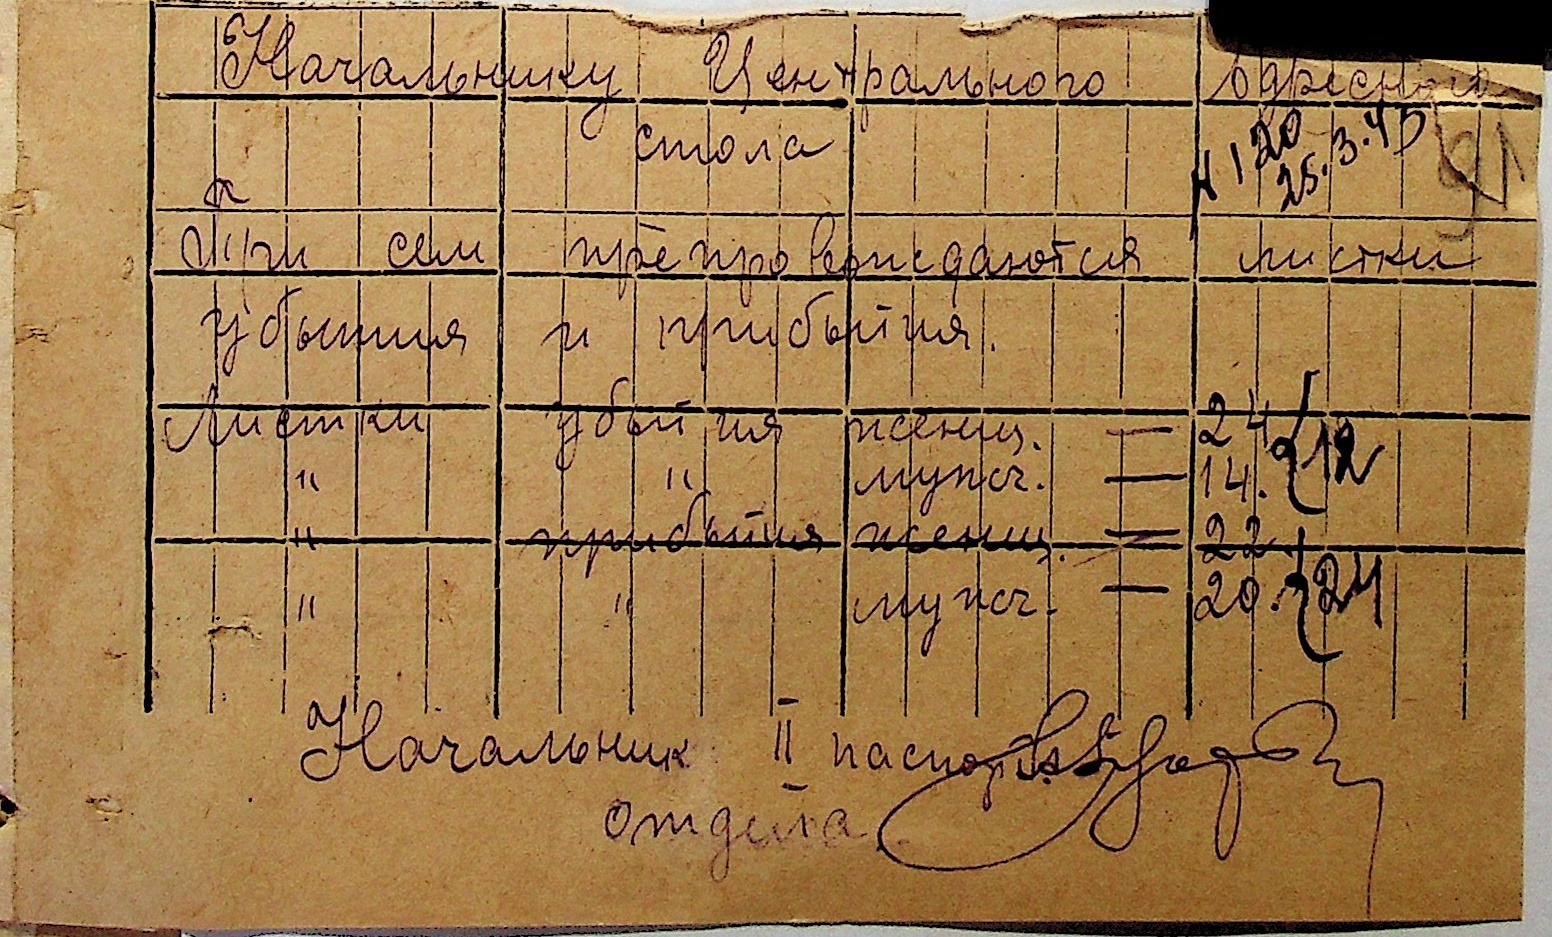 Начальнику Центрального адресного
стола
№ 120
25.3.43
При сем препровождаются листки
убытия и прибытия.
Листки убытия женщ. — 24
" " мужч. — 14.
" прибытия женщ. — 22
" " мужч. — 20.
Начальник II паспорт.
отдела